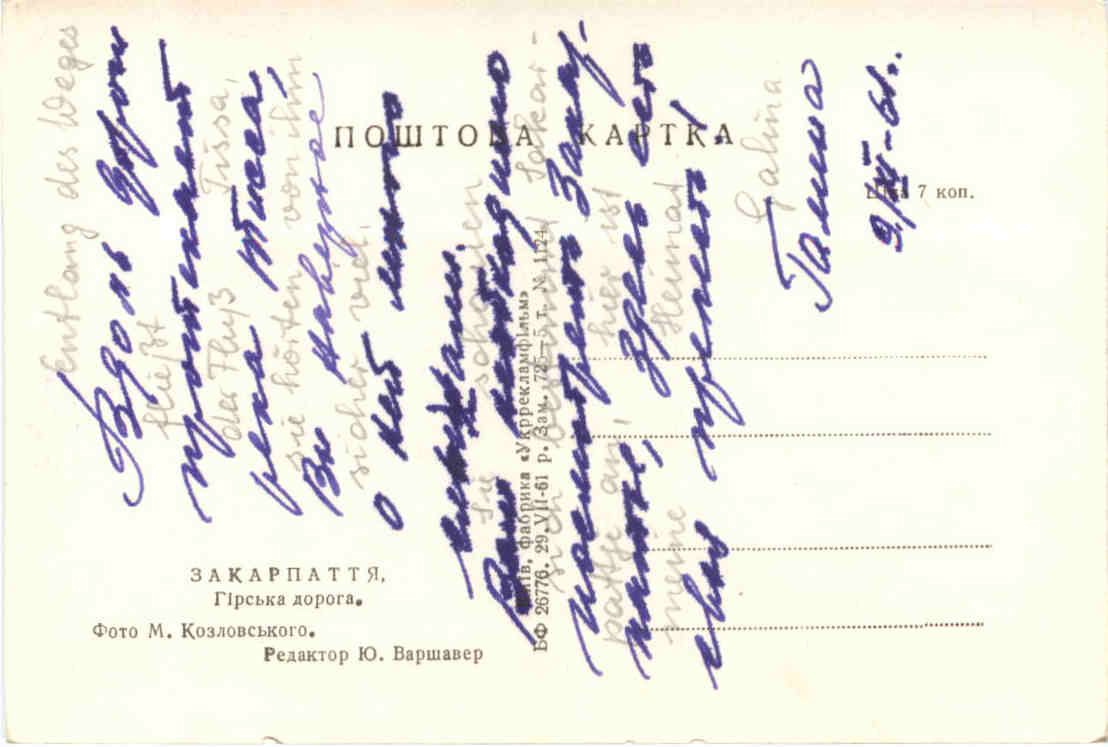 ПОШТОВА КАРТКА
Ціна 7 коп.
Вдоль дороги
протекает
река Тисса,
Вы наверное
о ней много
Вам необходимо
посмотреть Закар-
здесь есть
Галина
Entlang des Weges
fließt
der Fluß Tissa,
sie hörten von ihm
sicher viel.
Sie schauen
sich bestimmt Sakar-
pattje an, hier ist
meine Heimat
Galina
ЗАКАРПАТТЯ,
Гірська дорога.
Фото М. Козловського.
Редактор Ю. Варшавер
Київ, фабрика «Укррекламфільм»
БФ 26776. 29.VII-61 р. Зам. 725—5 т. № 1124.